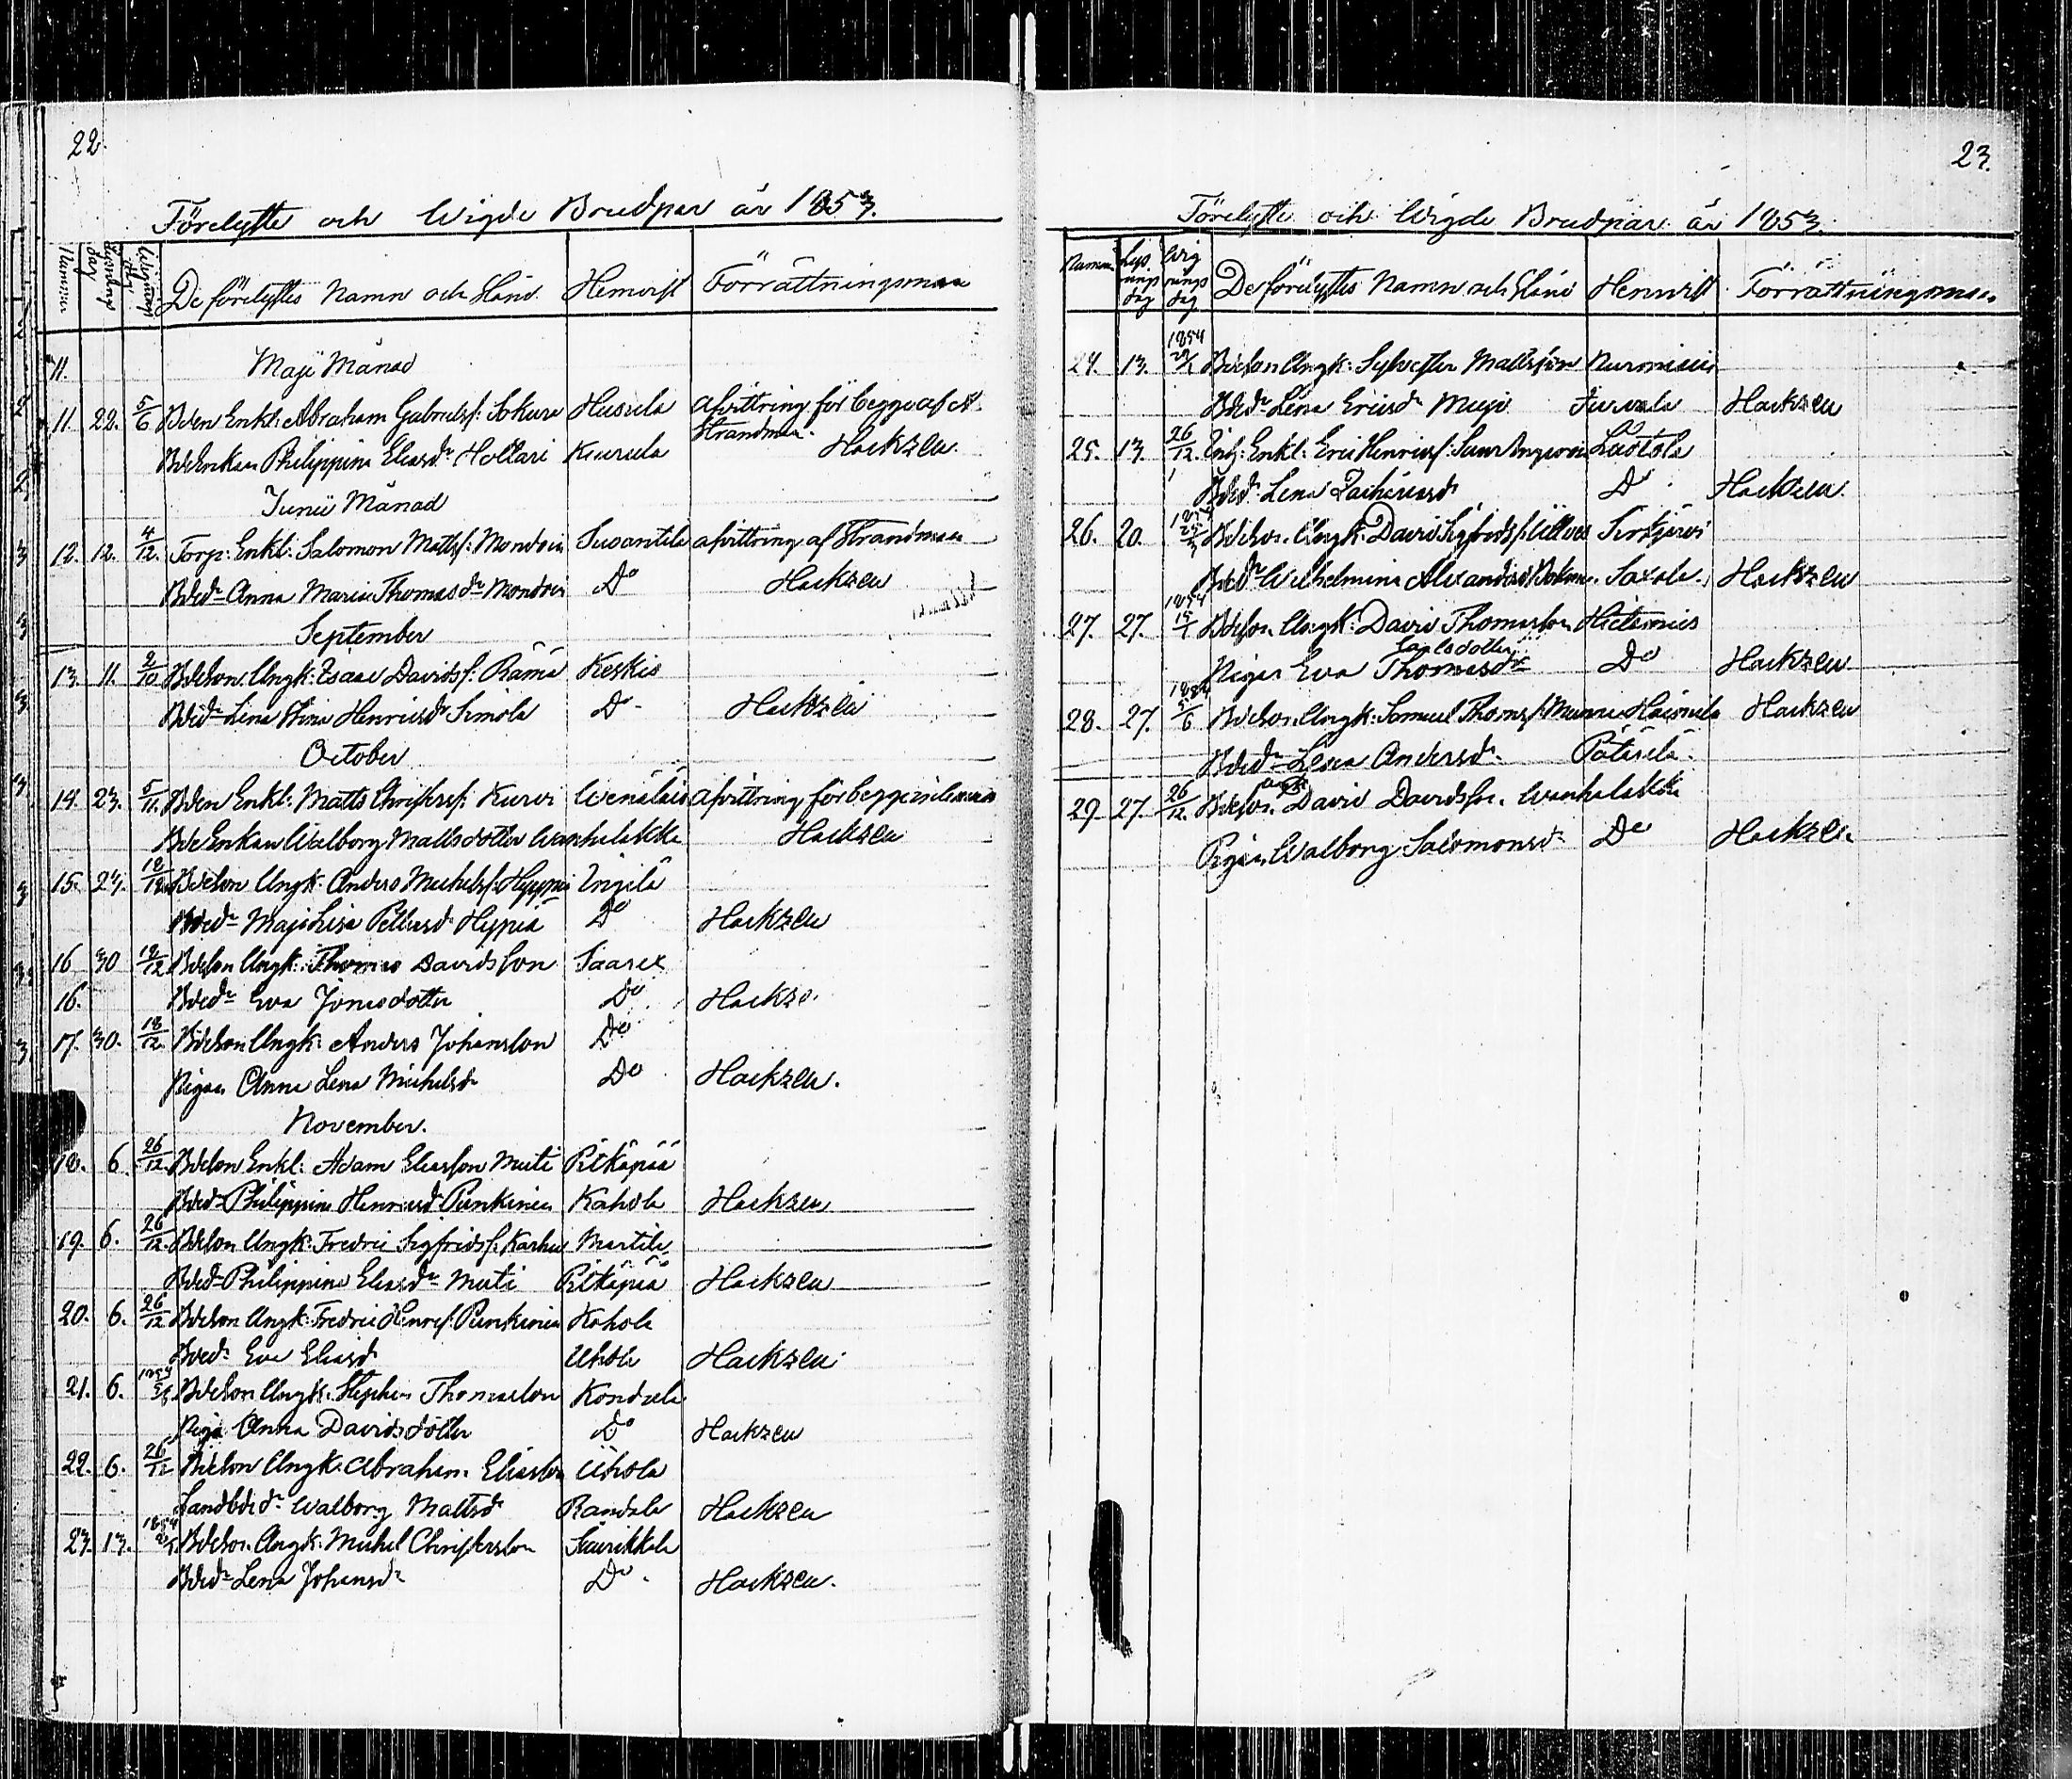 22.
Förelyste och Wigde Brudpar år 1853.
Nummer
Lysnings dag
Wignings dag
De förelystes Namn och Stånd.
Hemvist
Förrättningsman
11.
Maji Månad
11. 22. 5/6 Bden Enkl: Abraham Gabrielsf: Sokura Husula afvittring för begge af A. Strandman.
Bdeenkan Philippina Eliasdr Hottari Kursula Hackzell.
Junii Månad
12. 12. 4/12. Torp: Enkl: Salomon Mattsf: Mondoin Suvantila afvittring af Strandman
Bdedr Anna Maria Thomasdr Mondoin Do Hackzell
September
13. 11. 2/10 Bdeson Ungk: Esaias Davidsf: Rämä Keskis
Bdedr Lena Stina Henricsdr Simola Do Hackzell
October
14. 23. 5/11. Bden Enkl: Matts Christersf: Kurvi Wenäläis afvittring för begge
Bde Enkan Walborg Mattsdotter Wanhalakka Hackzell
15. 23. 18/12 Bdeson Ungk: Anders Michelsf: Hyppiä Ingilä
Bdedr Maja Lisa Pettersdr Hyppiä Do Hackzell
16 30 18/12 Bdeson Ungk: Thomas Davidsson Saarex
16. Bdedr Eva Jönsdotter Do Hackze.
17. 30. 18/12. Bdeson Ungk: Anders Johansson Do
Pigan Anna Lena Michelsdr Do Hackzell.
November.
18. 6. 26/12. Bdeson Enkl: Adam Eliasson Muti Pitkäpää
Bdedr Philippina Henricsdr Punkinen Kahola Hackzell
19. 6. 26/12. Bdeson Ungk: Fredric Sigfridsf: Karhu Martila
Bdedr Philippina Eliasdr Muti Pitkäpää Hackzell
20. 6. 26/12 Bdeson Ungk: Fredric Henricsf: Punkinen Kahola
Bdedr Eva Eliasdr Uhola Hackzell
21. 6. 1854 Bdeson Ungk: Stephan Thomasson Kondula
Piga Anna Davidsdotter Do Hackzell
22. 6. 26/12 Bdeson Ungk: Abraham Eliasson Uhola
Landbdedr Walborg Mattsdr Randala Hackzell
23. 13. 1854 Bdeson Ungk: Michel Christersson Säurikkala
Bdedr Lena Johansdr Do Hackzell.
23.
Förelyste och Wigde Brudpar år 1853.
Numm.
Lysnings dag
Wignings dag
De förelystes Namn och Stånd
Hemvist
Förrättningsman
24. 13. 1854 Bdeson Ungk: Sylvester Mattsson Nurmicus
Bdedr Lena Ericsdr Mugi Juvala Hackzell
25. 13. 26/12. Enkl: Eric Henricsf: Lastola
Bdedr Lena Zachariasdr Do Hackzell.
26. 20. Bdeson Ungk: David Sigfridsf: Sirkjärvi
Bdedr Wilhelmina Alexandersdr Saxala. Hackzell
27. 27. 1854 15/1 Bdeson Ungk: David Thomasson Hietamies
Carlsdotter
Pigan Eva Thomasdr Do Hackzell
28. 27. 1854 5/6 Bdeson Ungk: Samuel Thomsf: Hackzell
Bdedr Lena Andersdr. Pätärilä.
29. 27. 26/12. Bdeson David Davidsson. Wanhalakka
Pigan Walborg Salomonsdr Do Hackzell